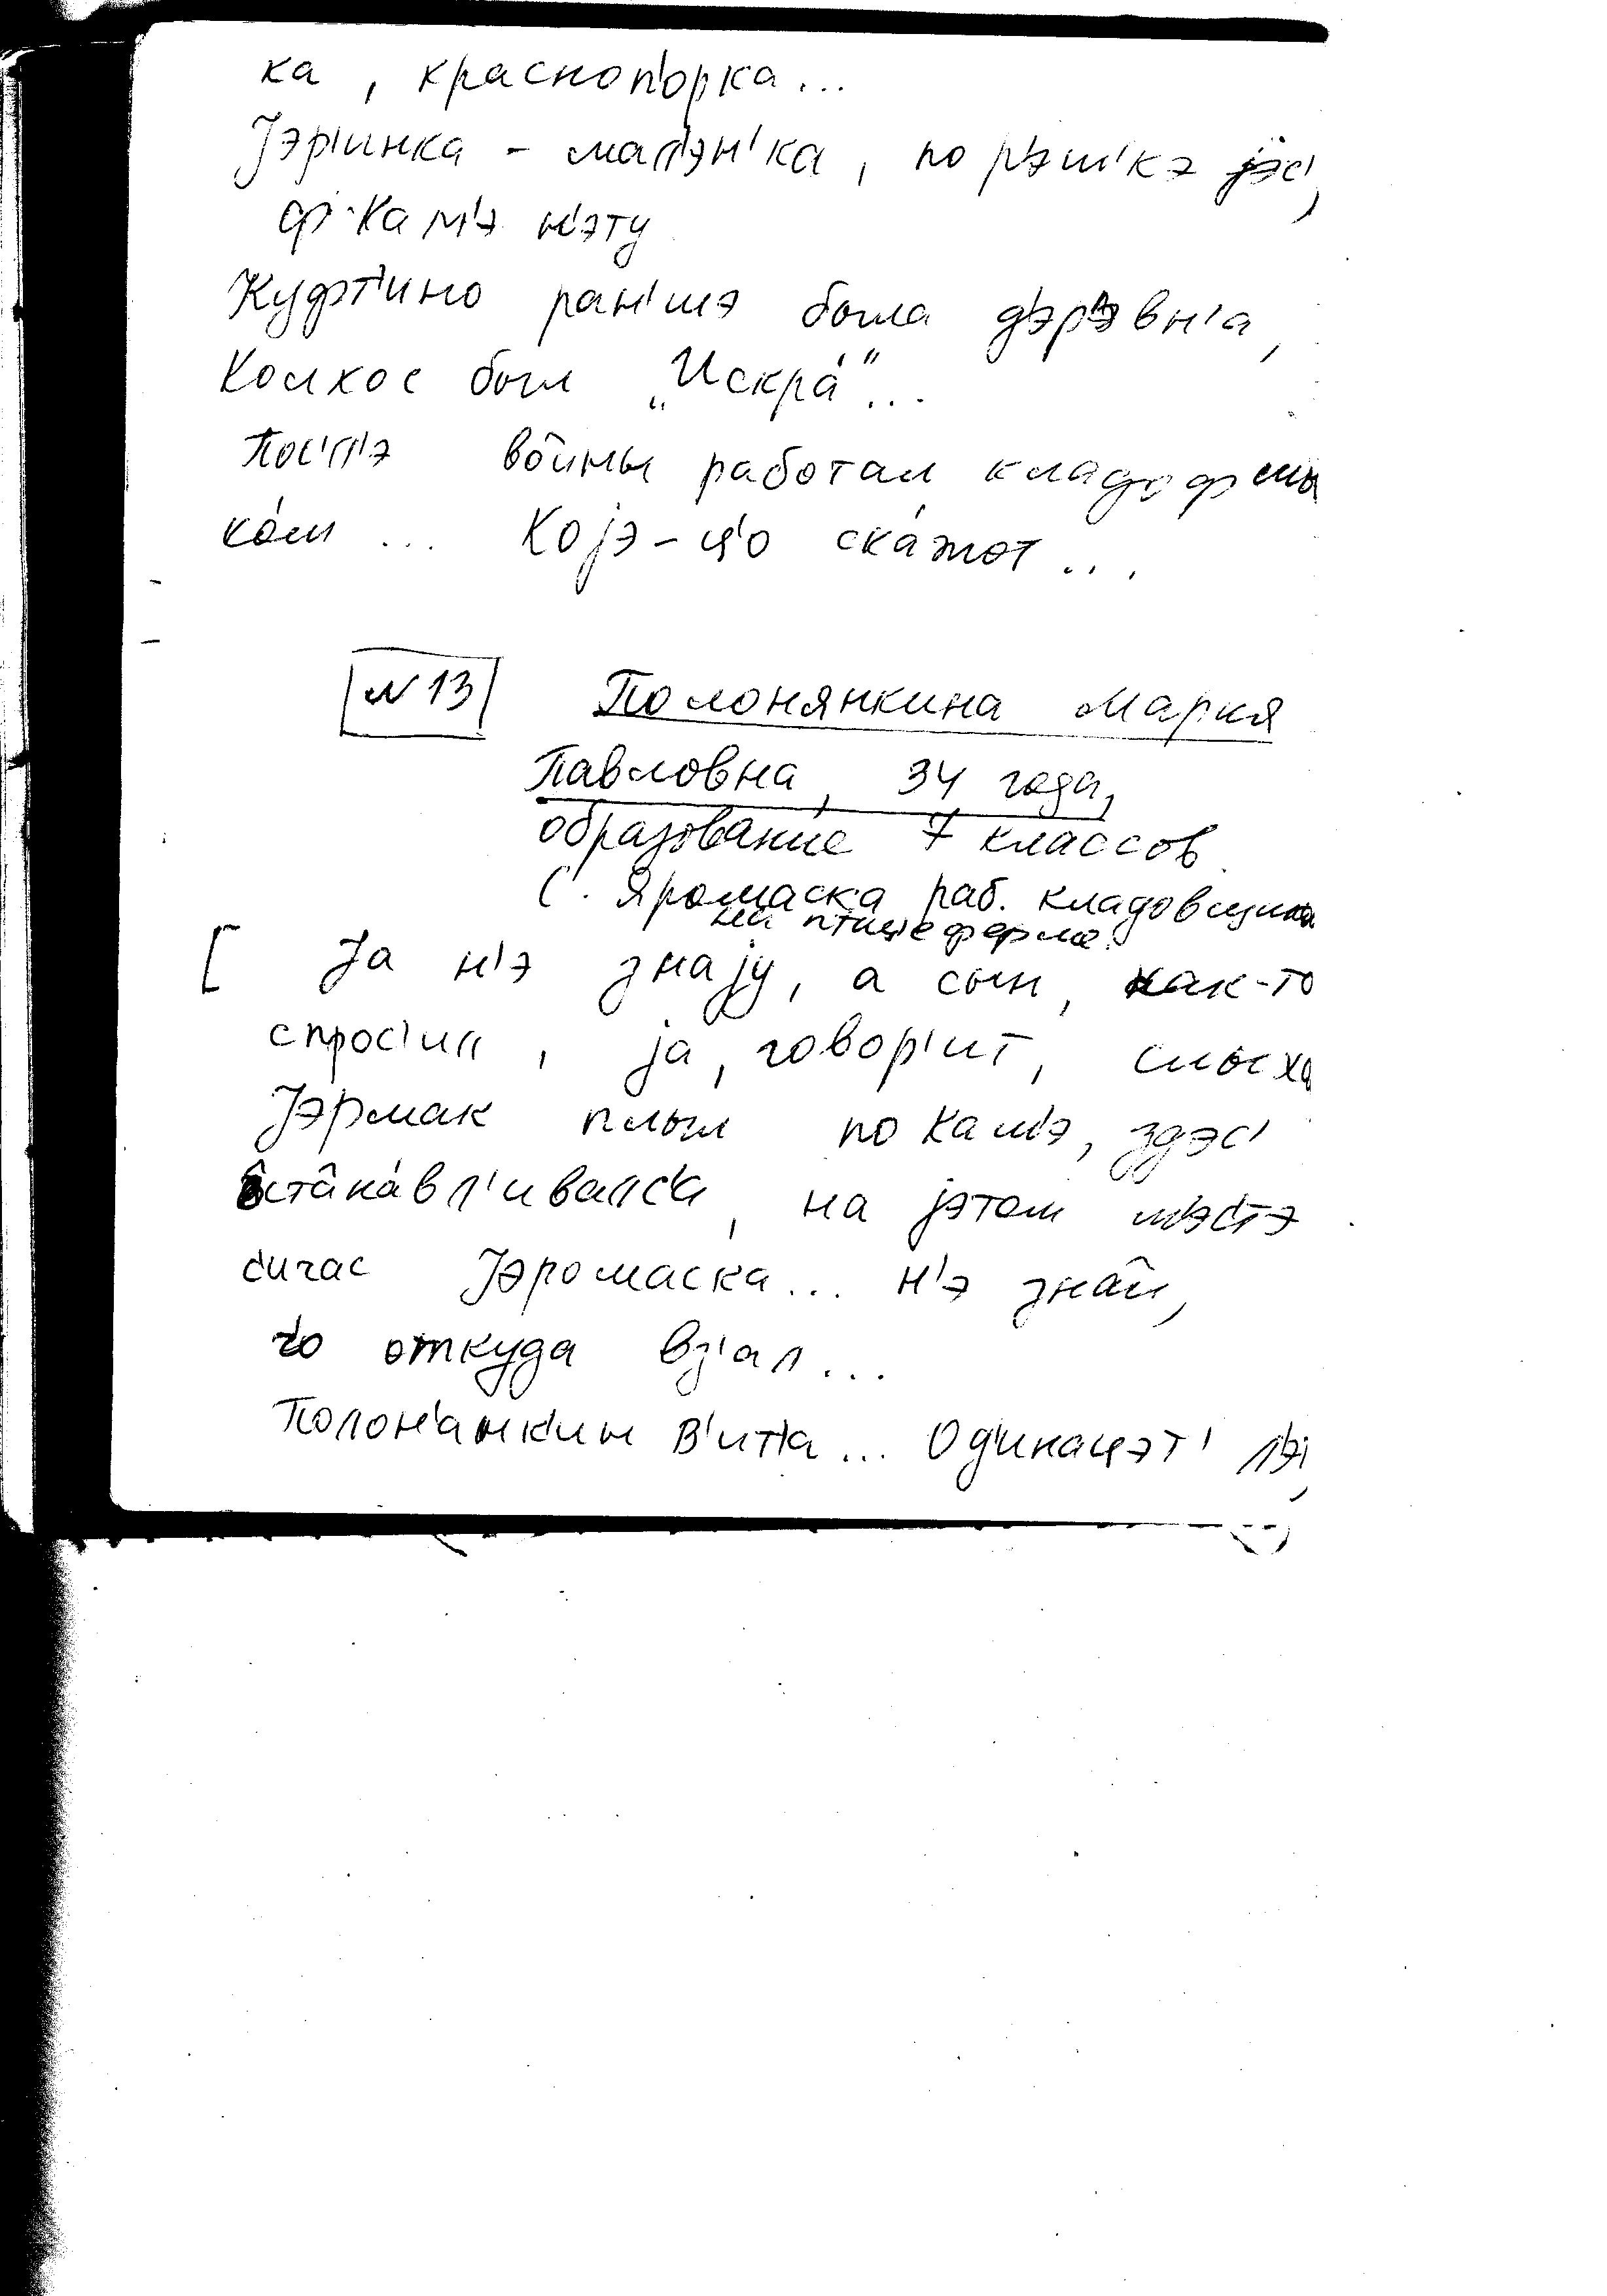 ка, красноп'орка...
Jэр'инка - мал'эн'ка, по р'эш'кэ jэс',
ф Кам'э н'эту
Куфт'ино ран'шэ была д'эр'эвн'а,
Колхос был „Искра́"...
Посл'э во̂йны работал кладофшы
ко́м ... Коjэ-ц'о ска́жот...
№13 Полонянкина Мария
Павловна, 34 года,
образование 7 классов
С. Яромаска раб. кладовщиком
на птицеферме.
[ Jа н'э знаjу, а сын, как-то
спрос'ил, jа, говор'ит, слыха
Jэрмак плыл по Кам'э, здэс'
о̂ста̂на́вл'ивалс'а, на jэтом м'эс'т'э
с'ичас Jэромаска... н'э зна̂й,
ч'о откуда вз'ал...
Полон'анк'ин В'ит'а... Од'инацэт' л'эт,